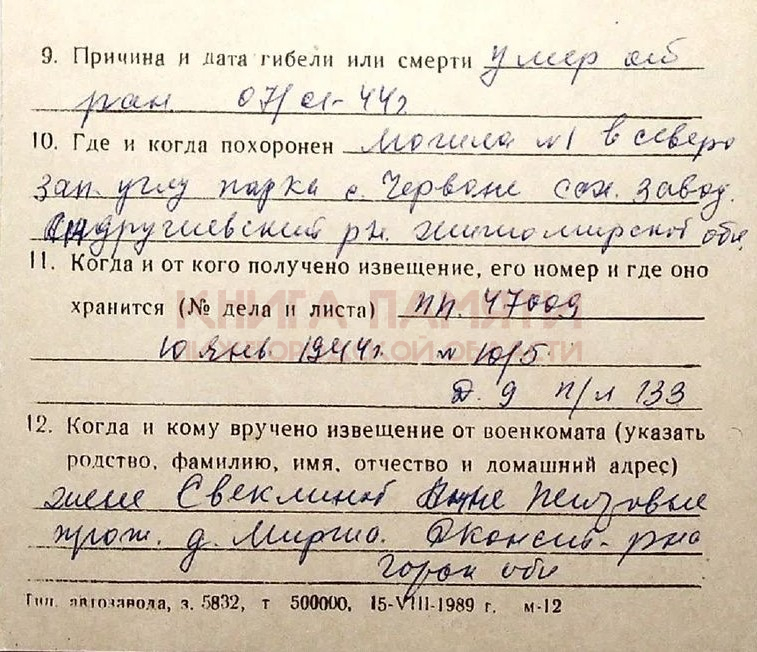 9. Причина и дата гибели или смерти умер от
ран 07/01-44г
10. Где и когда похоронен могила №1 в северо
зап. углу парка с. Червоне сах. завод.
Андрушевский рн. житомирской обл.
11. Когда и от кого получено извещение, его номер и где оно
хранится (№ дела и листа) пп. 47009
КНИГА ПАМЯТИ
10 янв 1944г. № 10/5
НИЖЕГОРОДСКОЙ ОБЛАСТИ
Д. 9 п/л 133
12. Когда и кому вручено извещение от военкомата (указать
родство, фамилию, имя, отчество и домашний адрес)
жене Свеклиной Анне
прож. д. рна
Горьк обл
Тип. автозавода, з. 5832, т 500000, 15-VIII-1989 г. м-12